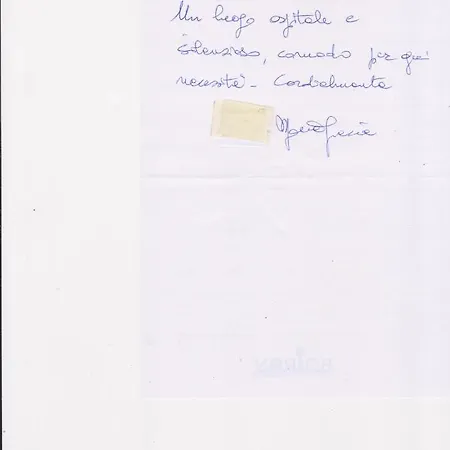 Un luogo ospitale e
silenzioso, comodo per ogni
necessità - Cordialmente